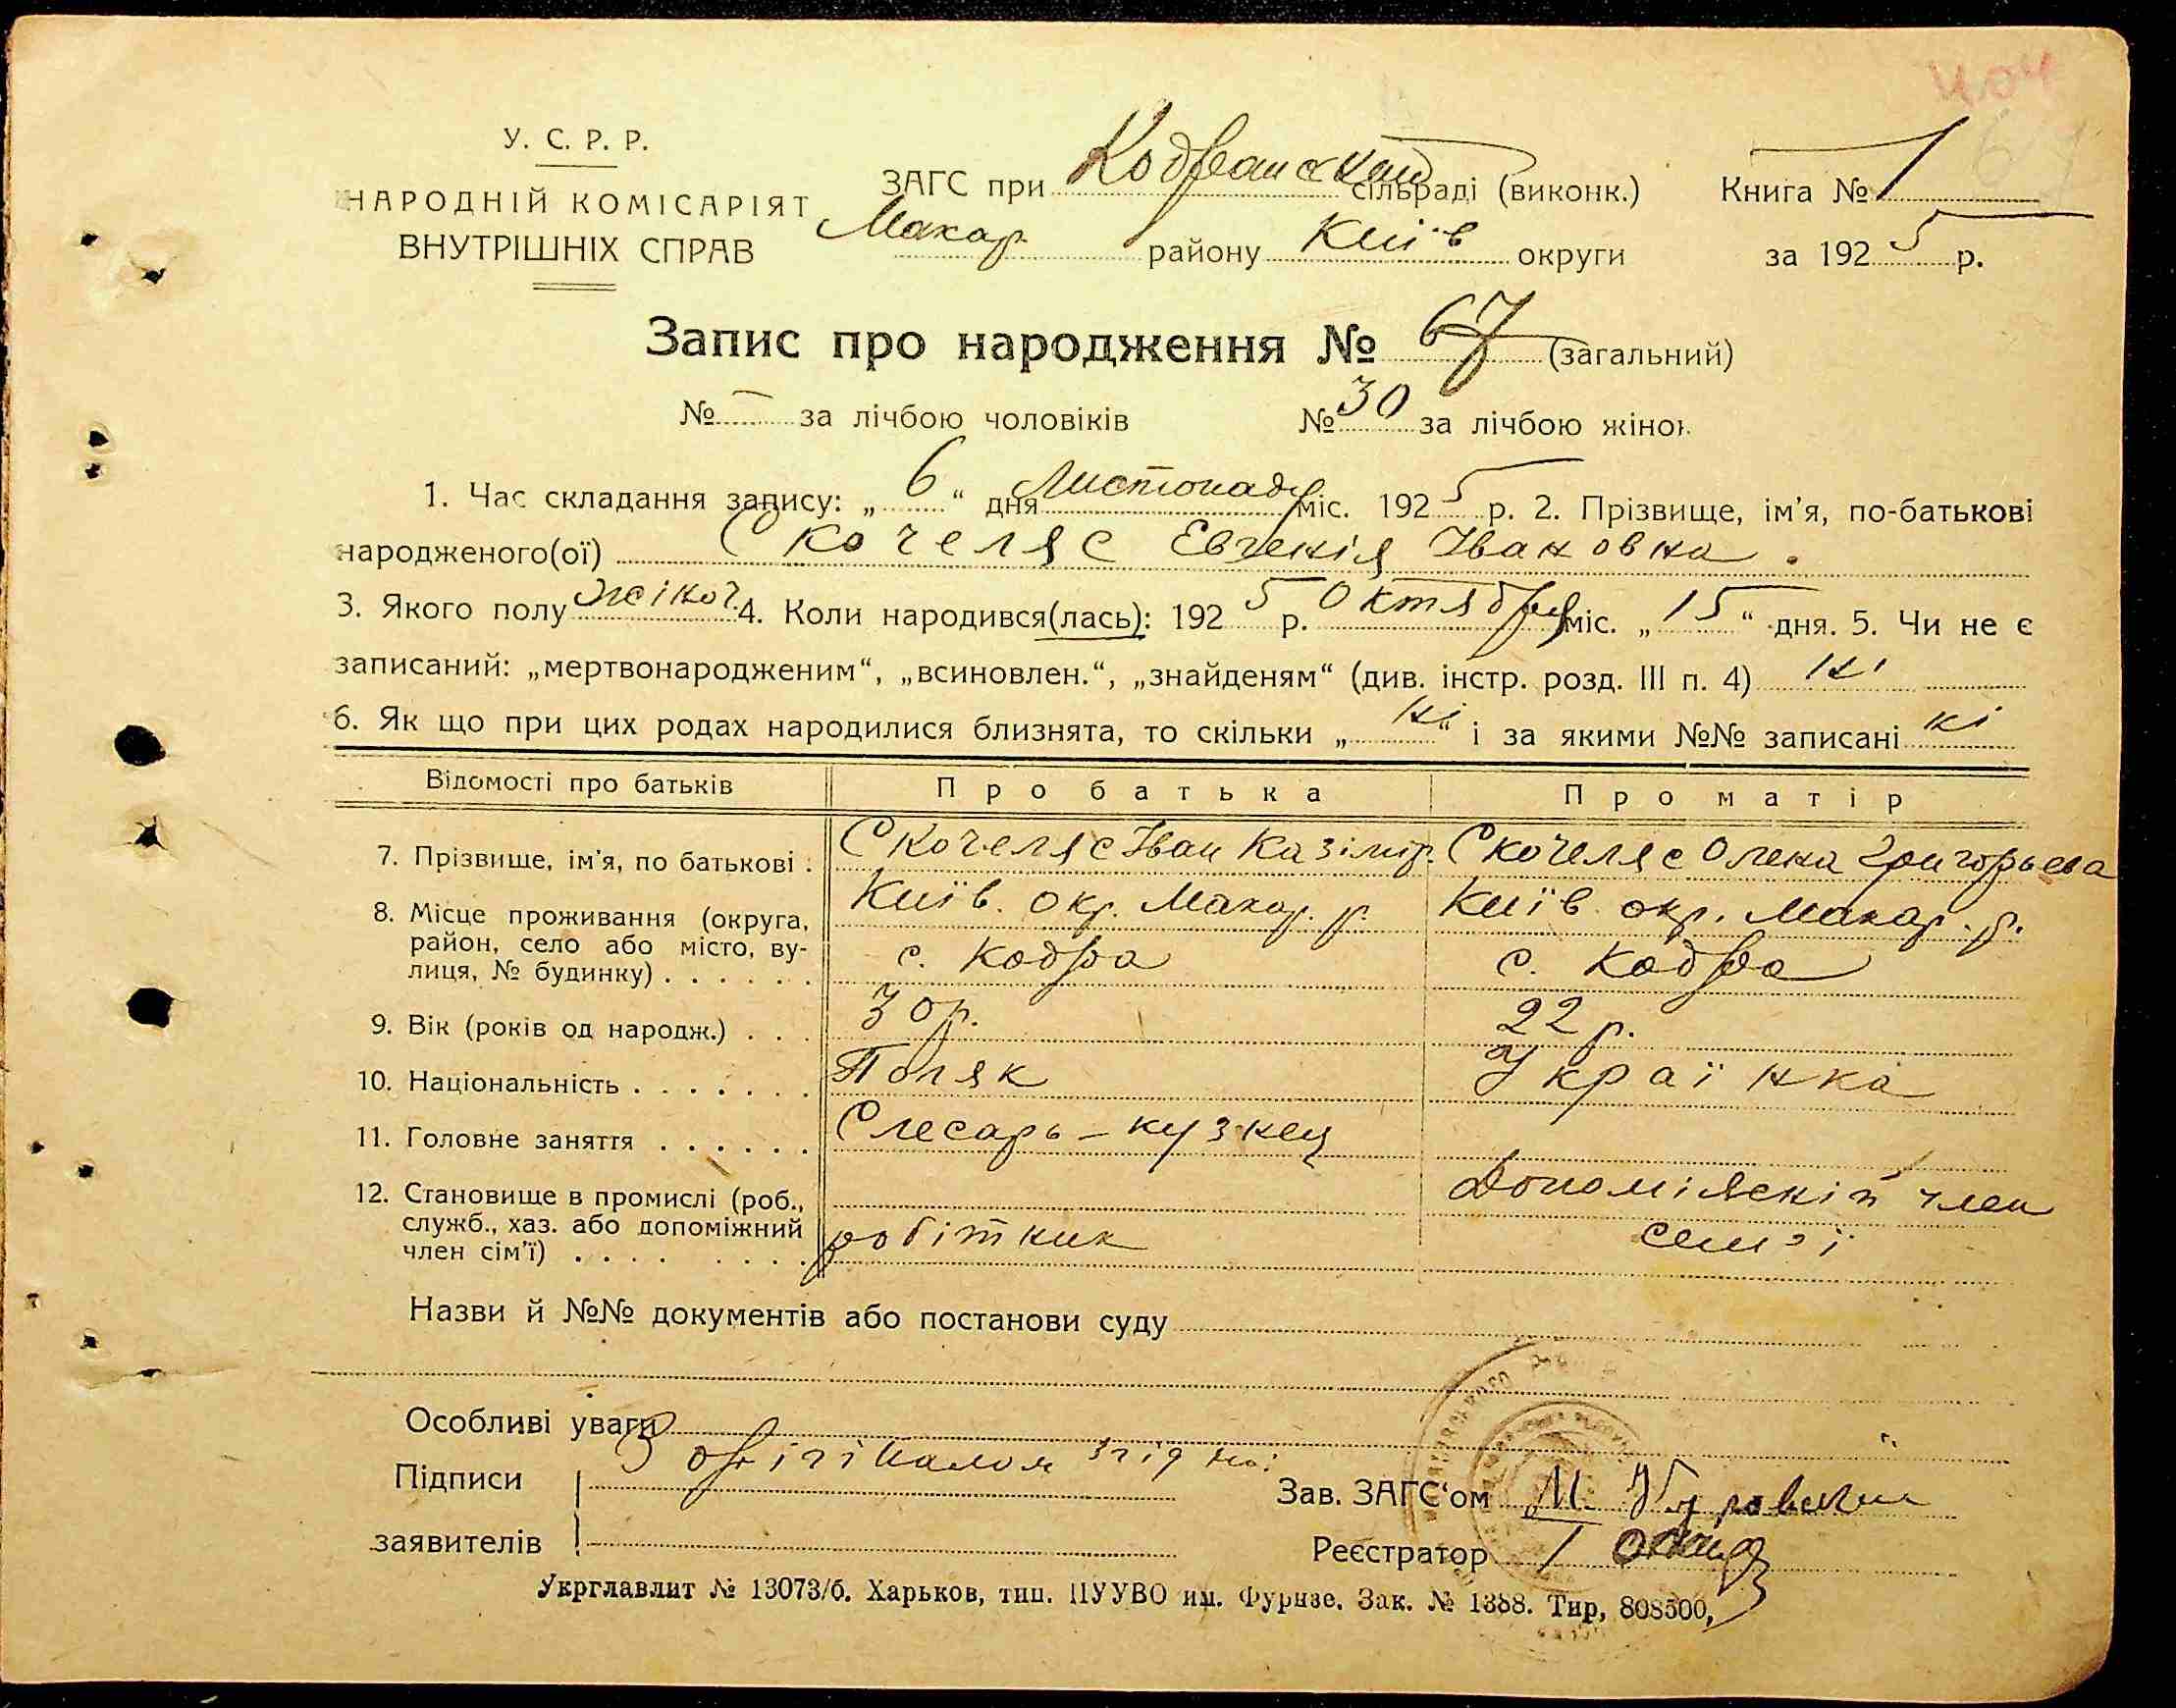 У. С. Р. Р.
НАРОДНІЙ КОМІСАРІЯТ
ВНУТРІШНІХ СПРАВ
ЗАГС при Кодранскій сільраді (виконк.) Книга № 1
Макар. району Київ округи за 1925 р.
Запис про народження № 67 (загальний)
№ — за лічбою чоловіків № 30 за лічбою жінок
1. Час складання запису: „6“ дня Листопад міс. 1925 р. 2. Прізвище, ім'я, по-батькові
народженого(ої) Скочеляс Евгенія Івановна.
3. Якого полу жіноч. 4. Коли народився(лась): 1925 р. Октября міс. „15“ дня. 5. Чи не є
записаний: „мертвонародженим“, „всиновлен.“, „знайденям“ (див. інстр. розд. III п. 4) ні
6. Як що при цих родах народилися близнята, то скільки „ні“ і за якими №№ записані ні
Відомості про батьків Про батька Про матір
7. Прізвище, ім'я, по батькові . Скочеляс Іван Казімір. Скочеляс Олена Григорьева
8. Місце проживання (округа, район, село або місто, вулиця, № будинку) . . . . . . Київ. окр. Макар. р. с. Кодра Київ окр. Макар. р. с. Кодра
9. Вік (років од народж.) . . . 30 р. 22 р.
10. Національність . . . . . . . Поляк Українка
11. Головне заняття . . . . . . Слесарь-кузнец
12. Становище в промислі (роб., служб., хаз. або допоміжний член сім'ї) . . . . . . . . робітник Допоміжній член сем'ї
Назви й №№ документів або постанови суду
Особливі уваги
З орігіналом згідно:
Підписи
заявителів
Зав. ЗАГС'ом М.
Реєстратор
Укрглавлит № 13073/б. Харьков, тип. ПУУВО им. Фрунзе. Зак. № 1388. Тир, 808500,